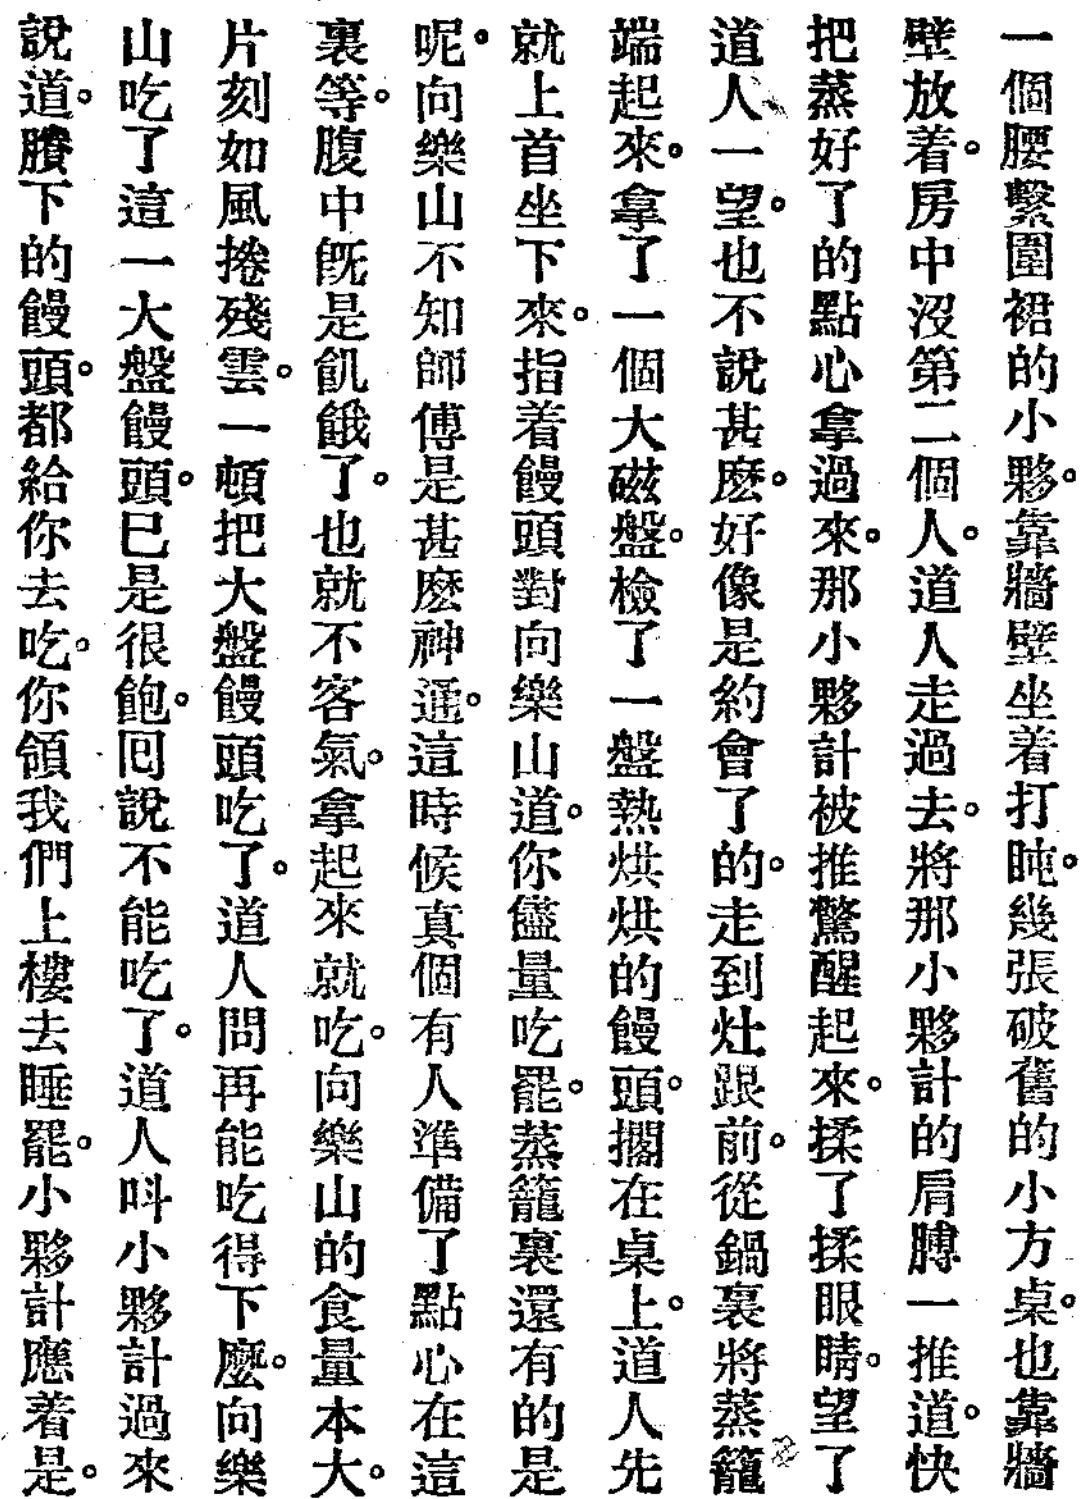 一個腰繫圍裙的小夥。靠牆壁坐着打盹。幾張破舊的小方桌。也靠牆
壁放着。房中沒第二個人。道人走過去。將那小夥計的肩膊一推道。快
把蒸好了的點心拿過來。那小夥計被推驚醒起來。揉了揉眼睛。望了
道人一望。也不說甚麽。好像是約會了的。走到灶跟前。從鍋裏將蒸籠
端起來。拿了一個大磁盤。檢了一盤熱烘烘的饅頭。擱在桌上。道人先
就上首坐下來。指着饅頭對向樂山道。你儘量吃罷。蒸籠裏還有的是
呢。向樂山不知師傅是甚麽神通。這時候真個有人準備了點心在這
裏等。腹中旣是飢餓了。也就不客氣。拿起來就吃。向樂山的食量本大。
片刻如風捲殘雲。一頓把大盤饅頭吃了。道人問再能吃得下麽。向樂
山吃了這一大盤饅頭。已是很飽。囘說不能吃了。道人呌小夥計過來
說道。賸下的饅頭。都給你去吃。你領我們上樓去睡罷。小夥計應着是。